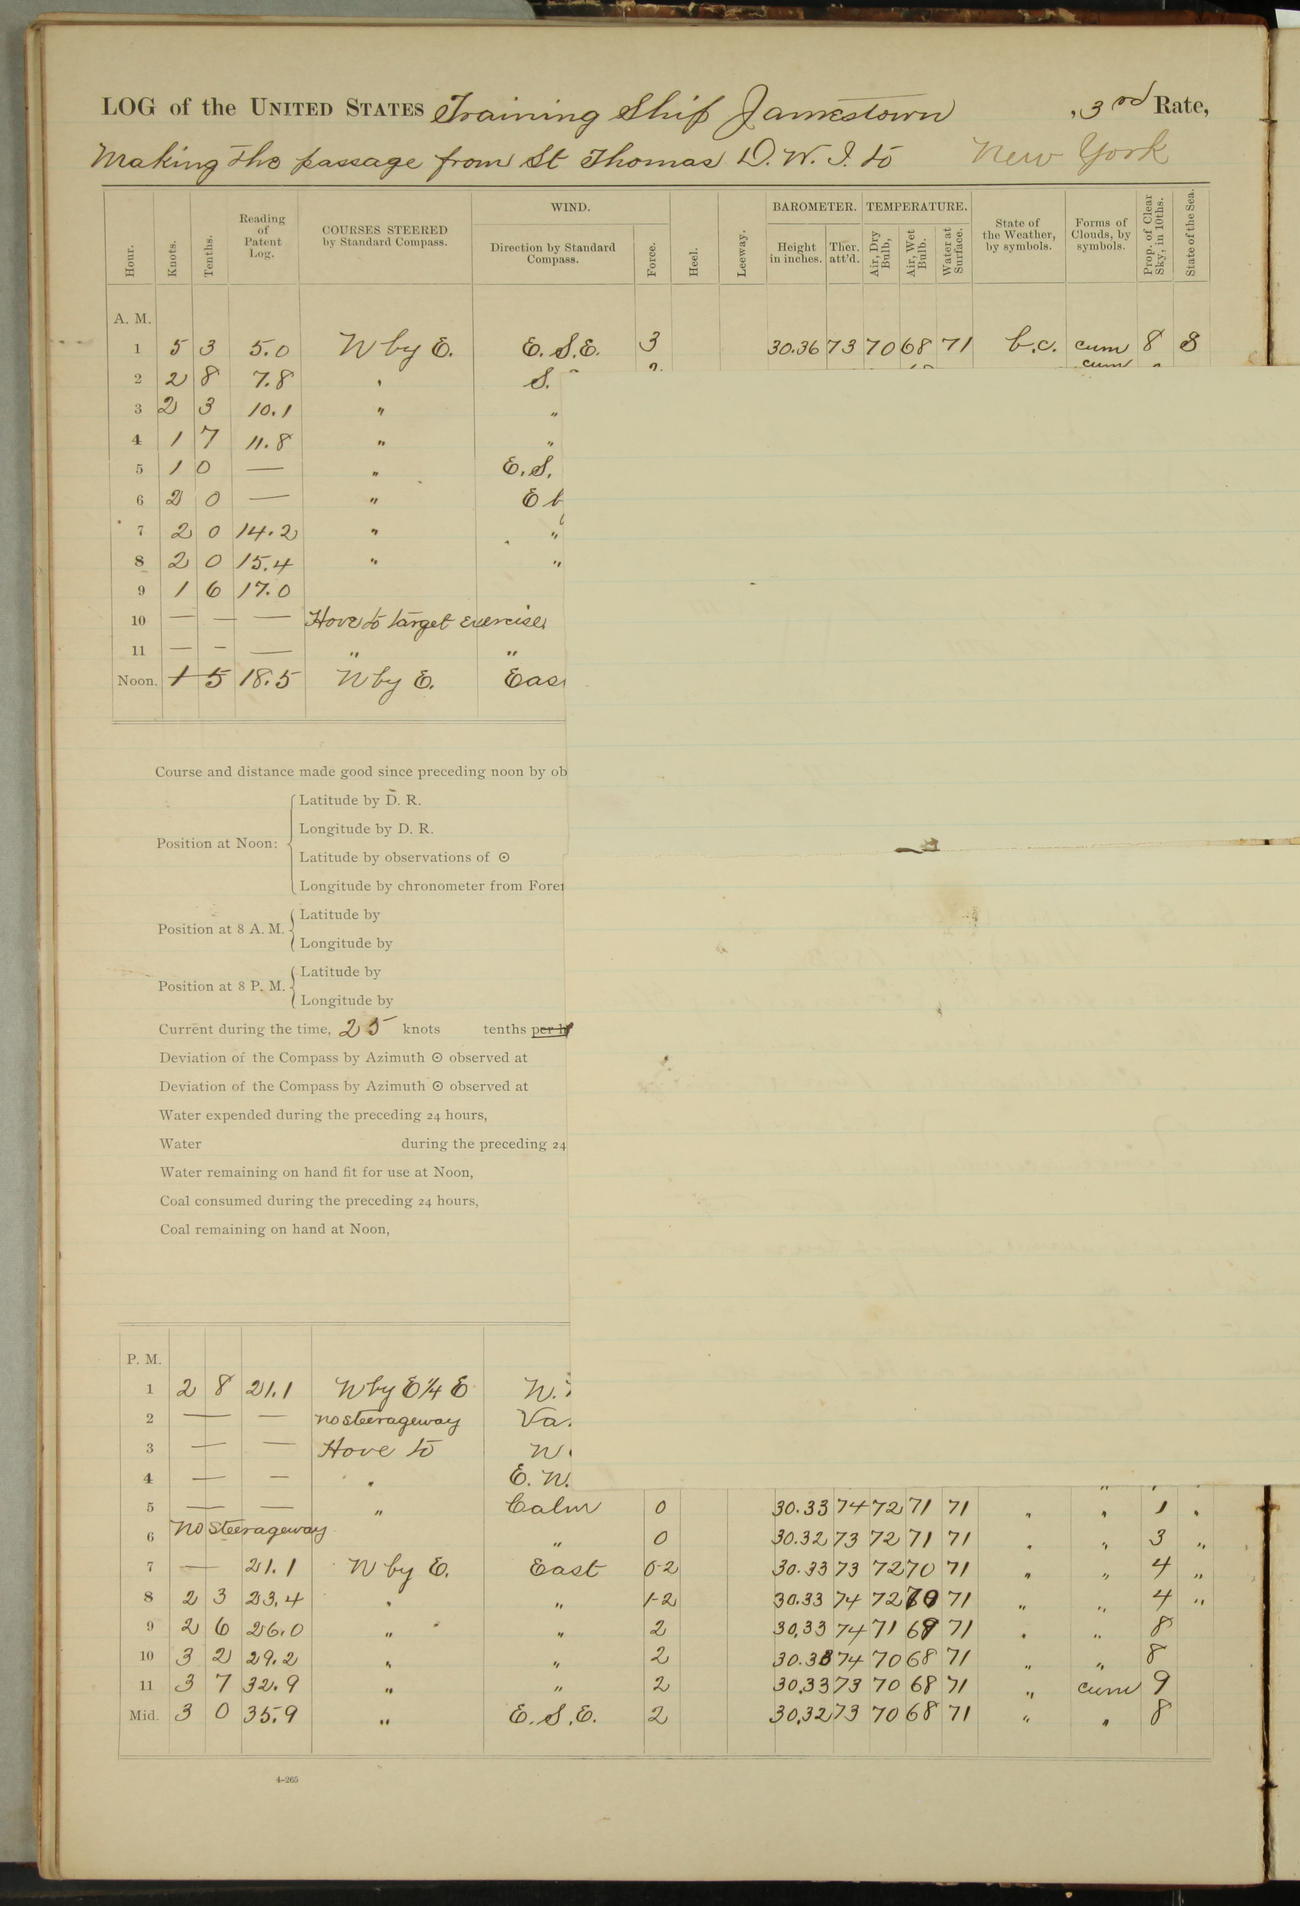 LOG of the UNITED STATES Training Ship Jamestown , 3rd Rate,
Making the passage from St Thomas D. W. I. to New York
Hour. Knots. Tenths. Reading of Patent Log. COURSES STEERED by Standard Compass. WIND. Direction by Standard Compass. Force. Heel. Leeway. BAROMETER. Height in inches. Ther. att'd. TEMPERATURE. Air, Dry Bulb, Air, Wet Bulb. Water at Surface. State of the Weather, by symbols. Forms of Clouds, by symbols. Prop. of Clear Sky, in 10ths. State of the Sea.
A. M.
1 5 3 5.0 N by E. E. S.E. 3 30.36 73 70 68 71 b.c. cum 8 S
2 2 8 7.8 " S. cum
3 2 3 10.1 " "
4 1 7 11.8 " "
5 1 0 — " E. S.
6 2 0 — " E b
7 2 0 14.2 " "
8 2 0 15.4 " "
9 1 6 17.0
10 — — — Hove to target exercises
11 — — — " "
Noon. 1 5 18.5 N by E. Eas
Course and distance made good since preceding noon by ob
Position at Noon:
Latitude by D. R.
Longitude by D. R.
Latitude by observations of ☉
Longitude by chronometer from Fore
Position at 8 A. M.
Latitude by
Longitude by
Position at 8 P. M.
Latitude by
Longitude by
Current during the time, 25 knots tenths per h
Deviation of the Compass by Azimuth ☉ observed at
Deviation of the Compass by Azimuth ☉ observed at
Water expended during the preceding 24 hours,
Water during the preceding 24
Water remaining on hand fit for use at Noon,
Coal consumed during the preceding 24 hours,
Coal remaining on hand at Noon,
P. M.
1 2 8 21.1 N by E ¼ E N.
2 — — no steerageway Va
3 — — Hove to N
4 — — " E. N.
5 — — " Calm 0 30.33 74 72 71 71 " " 1 "
6 No steerageway " 0 30.32 73 72 71 71 " " 3 "
7 — 21.1 N by E. East 0-2 30.33 73 72 70 71 " " 4 "
8 2 3 23.4 " " 1-2 30.33 74 72 70 71 " " 4 "
9 2 6 26.0 " " 2 30.33 74 71 69 71 " " 8
10 3 2 29.2 " " 2 30.33 74 70 68 71 " " 8
11 3 7 32.9 " " 2 30.33 73 70 68 71 " cum 9
Mid. 3 0 35.9 " E. S. E. 2 30.32 73 70 68 71 " " 8
4-265